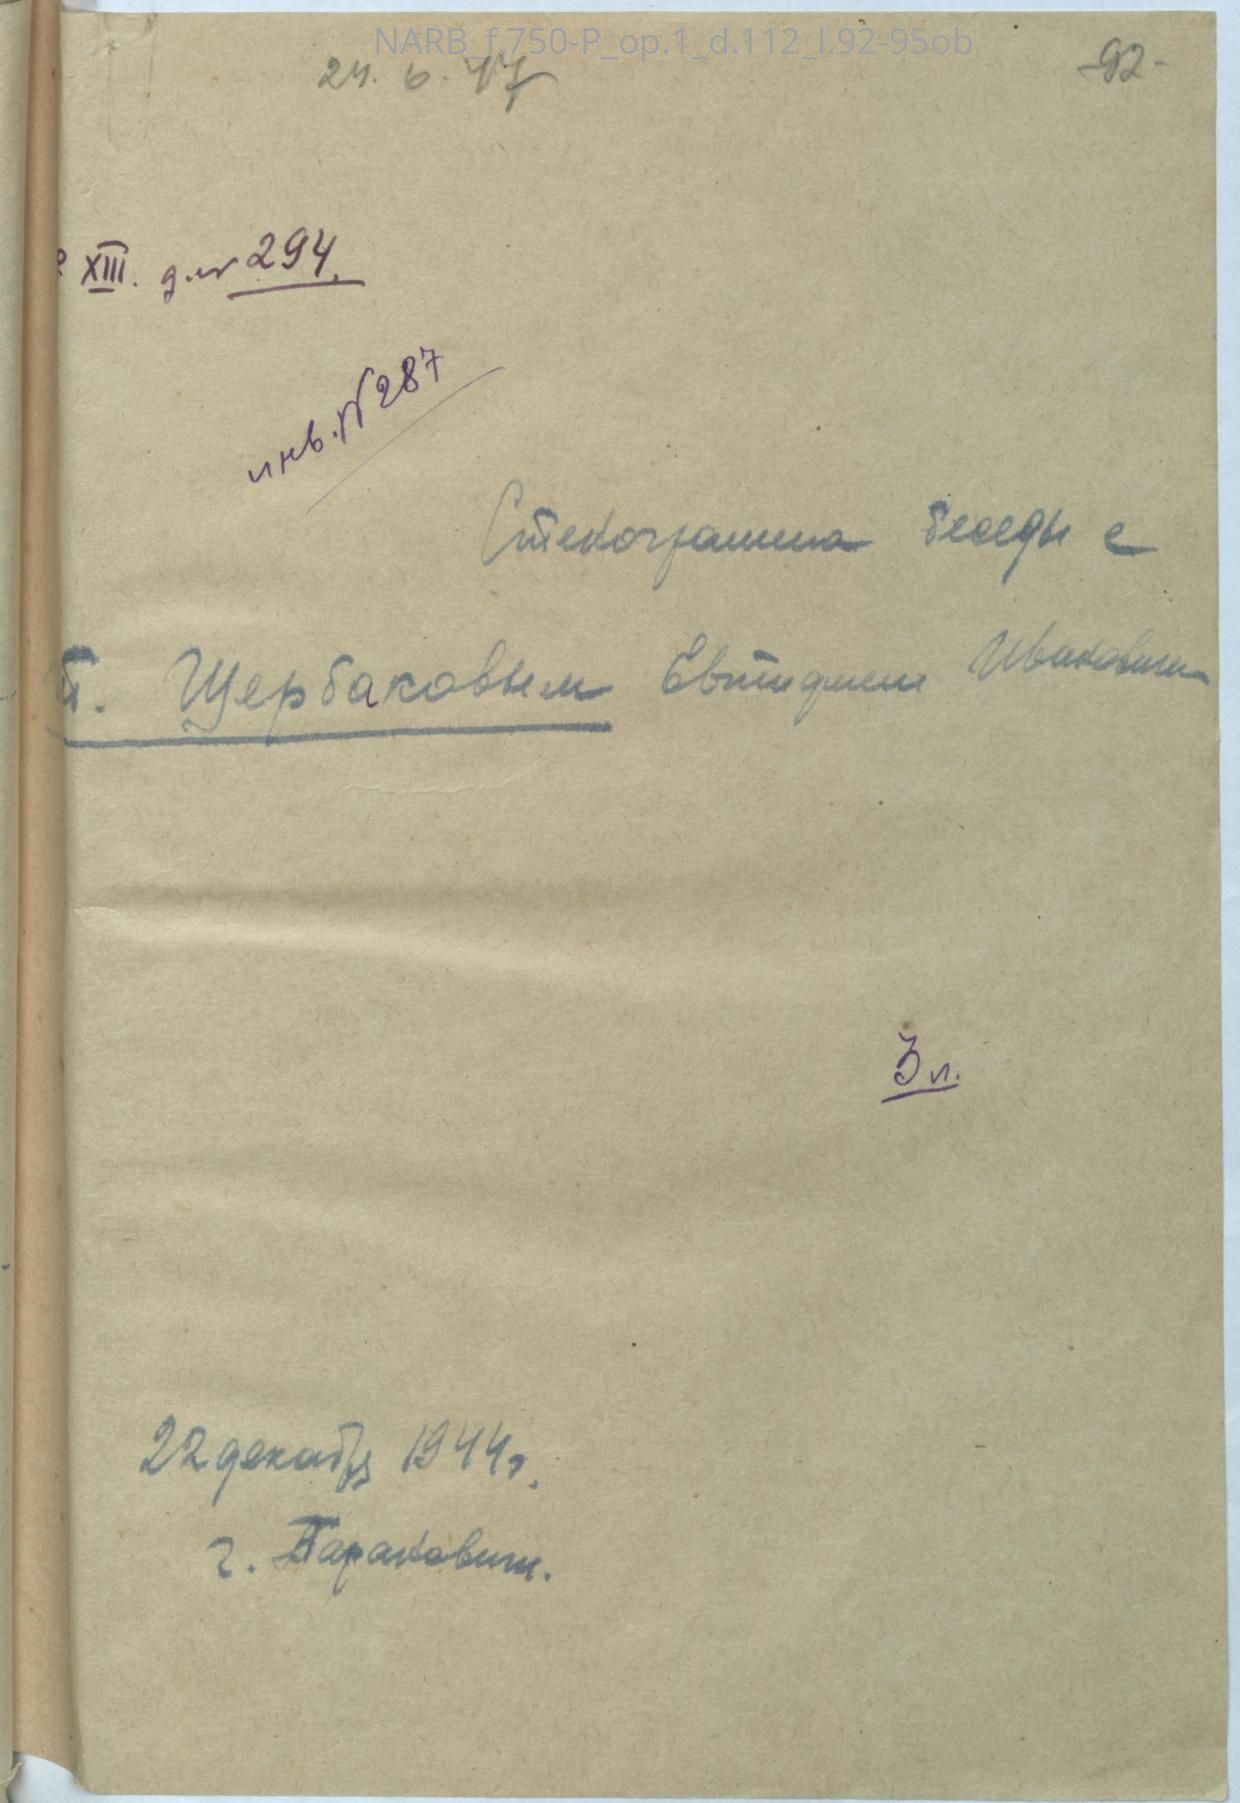 NARB_f.750-P_op.1_d.112_l.92-95ob
24. 6. 47
-92-
XIII. д.№ 294.
инв. № 287
Стенограмма беседы с
т. Щербаковым Евтифием Ивановичем
3 л.
22 декабря 1944 г.
г. Баранович.